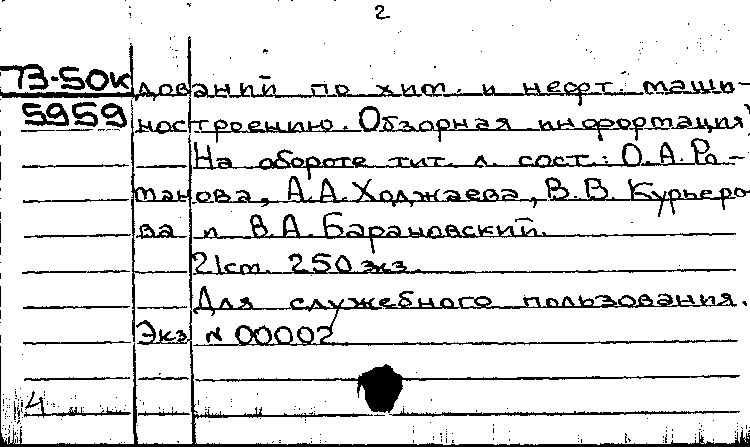 2
73-50к дований по хим. и нефт. маши-
5959 ностроению. Обзорная информация)
На обороте тит. л. сост.: О.А.Ро-
манова, А.А.Ходжаева, В.В. Курьеро
ва и В.А.Барановский.
21см. 250 экз.
Для служебного пользования.
Экз N 00002
4